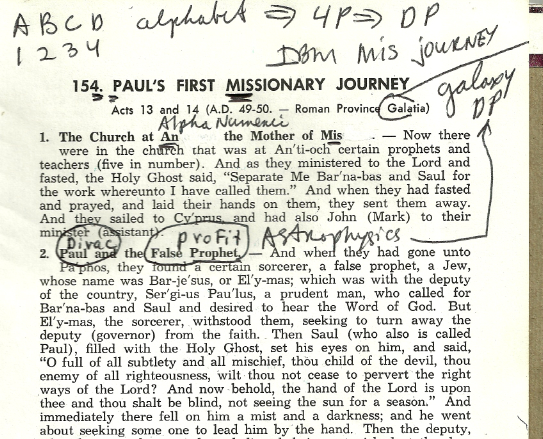 A B C D alphabet ⇒ 4P ⇒ DP
1 2 3 4 DBM Mis JOURNEY
154. PAUL'S FIRST MISSIONARY JOURNEY
galaxy
DP
Acts 13 and 14 (A.D. 49-50. — Roman Province Galatia)
Alpha Numeric
1. The Church at An the Mother of Mis . — Now there
were in the church that was at An'ti-och certain prophets and
teachers (five in number). And as they ministered to the Lord and
fasted, the Holy Ghost said, "Separate Me Bar'na-bas and Saul for
the work whereunto I have called them." And when they had fasted
and prayed, and laid their hands on them, they sent them away.
And they sailed to Cy'prus, and had also John (Mark) to their
minister (assistant).
Dirac proFit Astrophysics
2. Paul and the False Prophet. — And when they had gone unto
Pa'phos, they found a certain sorcerer, a false prophet, a Jew,
whose name was Bar-je'sus, or El'y-mas; which was with the deputy
of the country, Ser'gi-us Pau'lus, a prudent man, who called for
Bar'na-bas and Saul and desired to hear the Word of God. But
El'y-mas, the sorcerer, withstood them, seeking to turn away the
deputy (governor) from the faith. Then Saul (who also is called
Paul), filled with the Holy Ghost, set his eyes on him, and said,
"O full of all subtlety and all mischief, thou child of the devil, thou
enemy of all righteousness, wilt thou not cease to pervert the right
ways of the Lord? And now behold, the hand of the Lord is upon
thee and thou shalt be blind, not seeing the sun for a season." And
immediately there fell on him a mist and a darkness; and he went
about seeking some one to lead him by the hand. Then the deputy,